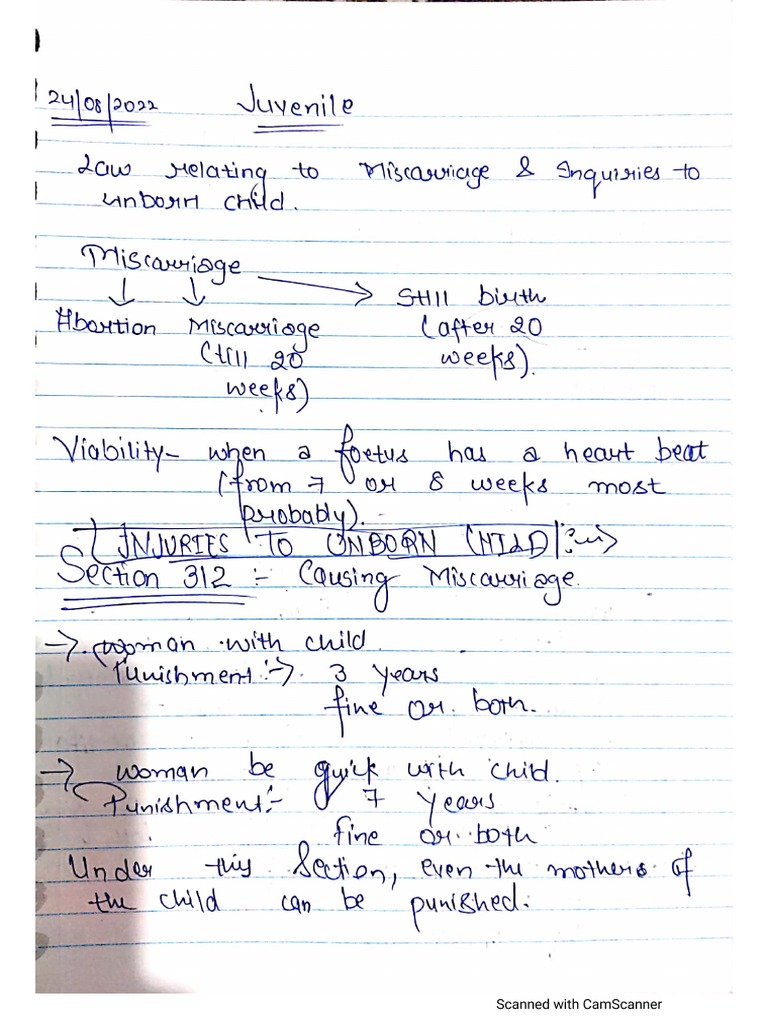 24/08/2022 Juvenile
Law relating to Miscarriage & Inquiries to
unborn child.
Miscarriage
Abortion Miscarriage Still birth
(till 20 (after 20
weeks) weeks).
Viability- when a foetus has a heart beat
(from 7 or 8 weeks most
probably).
INJURIES TO UNBORN CHILD
Section 312 :- Causing Miscarriage.
→ woman with child.
Punishment :→ 3 years
fine or both.
→ woman be quick with child.
Punishment :- 7 years
fine or both
Under this Section, even the mothers of
the child can be punished.
Scanned with CamScanner